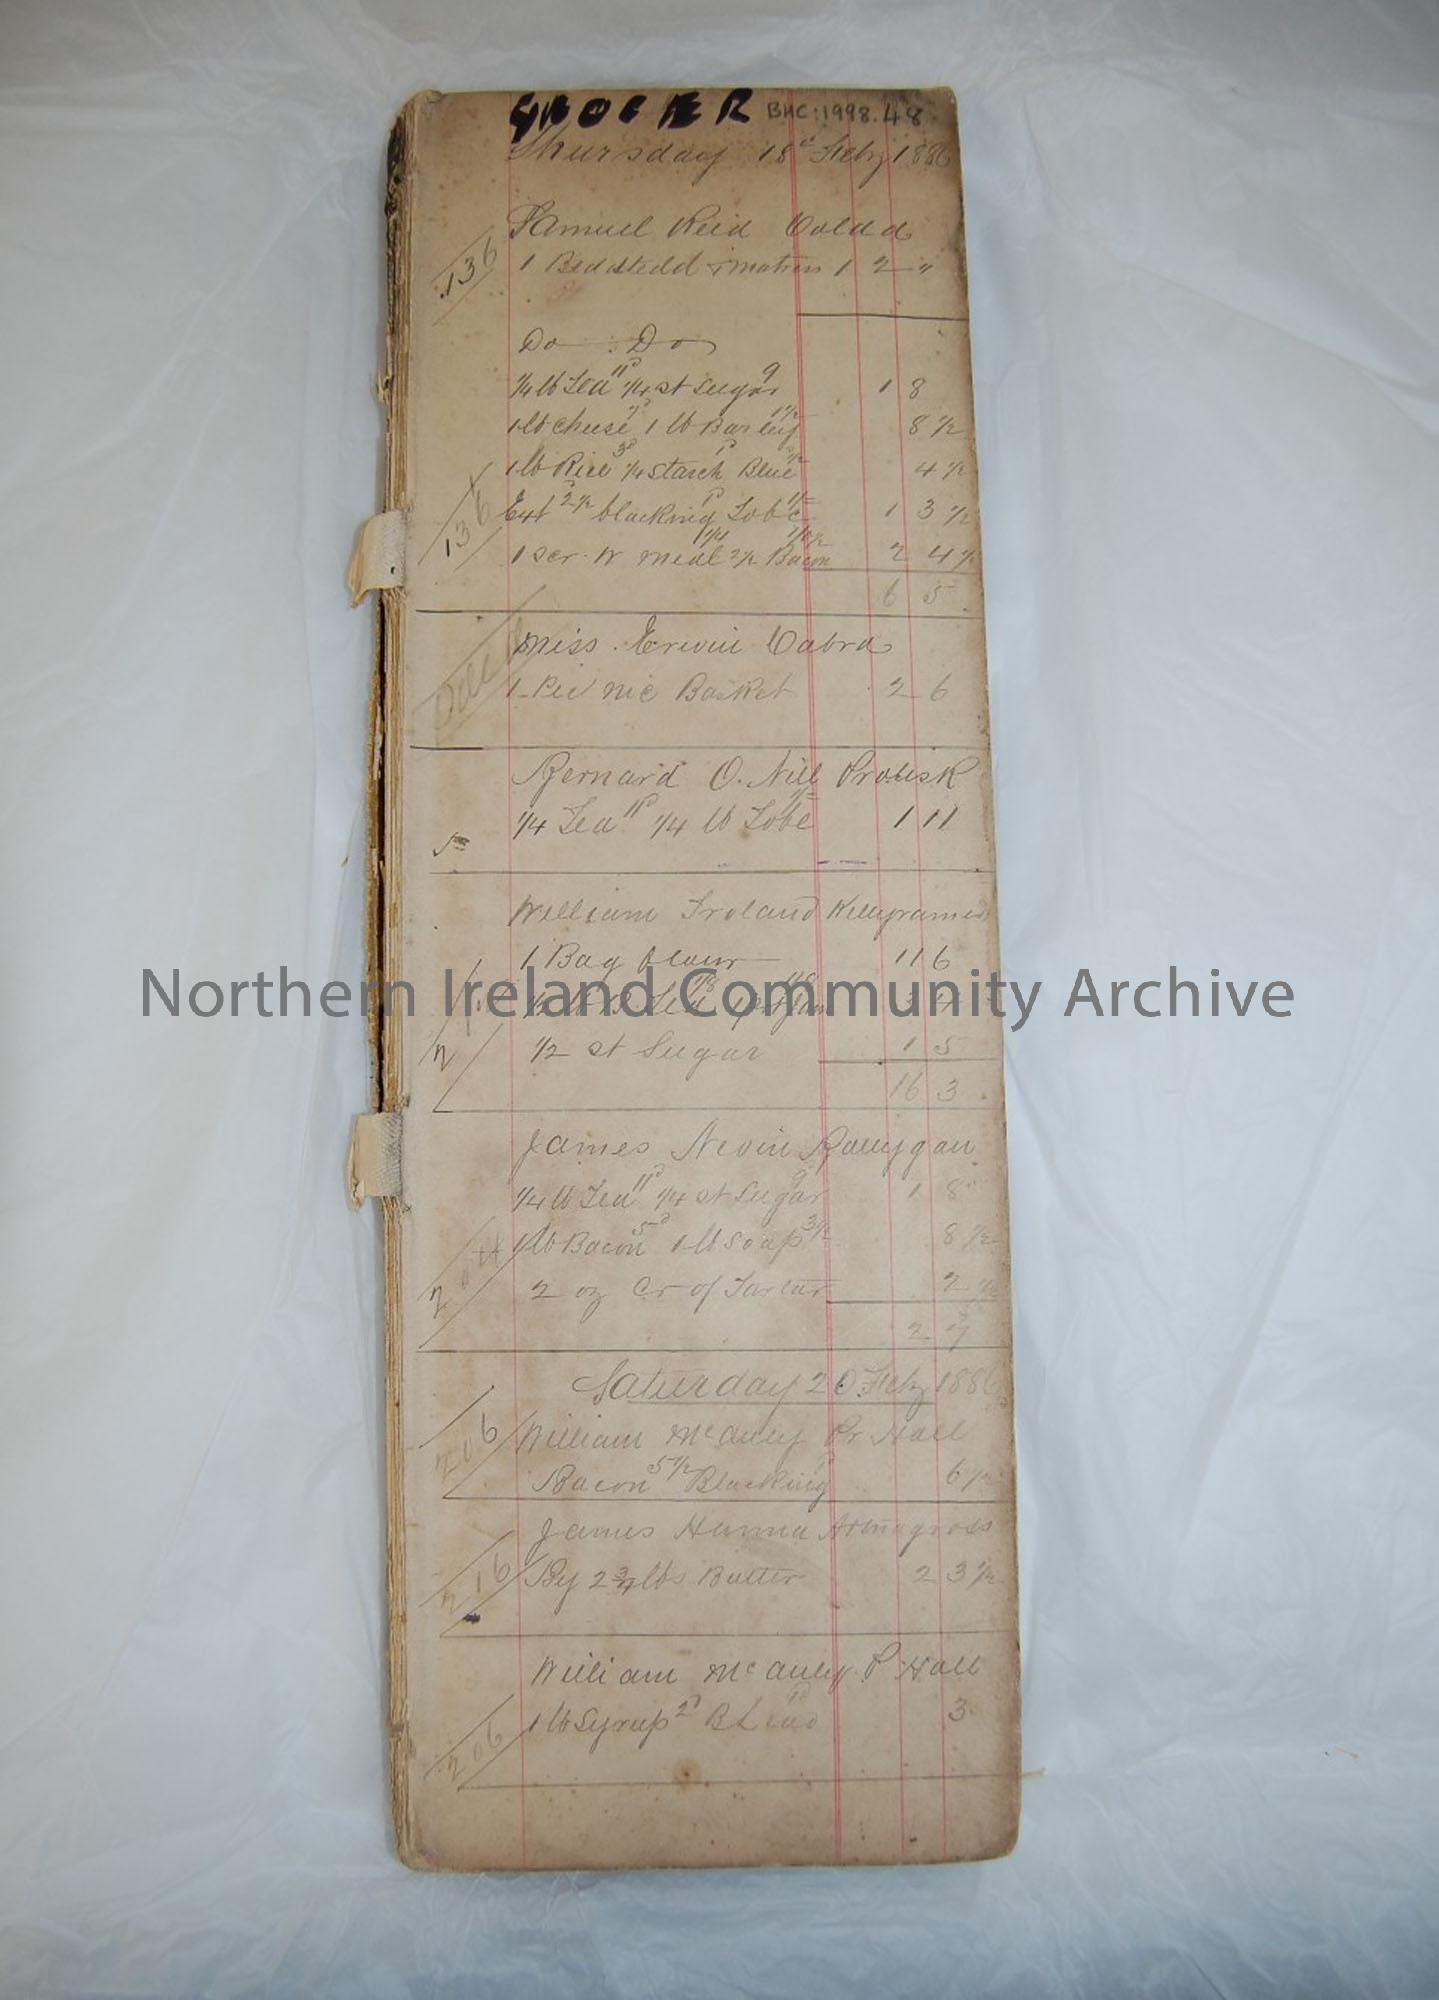 GROCER BHC:1998.48
Thursday 18th Feby 1886
Samuel Reid
136
1 Beddstedd & matress 1 2 "
Do Do
1/4 lb Tea 11d 1/4 st Sugar 9 1 8
1 lb Cheese 7d 1 lb Barley 1 1/2 8 1/2
1 lb Rice 3d 1/4 starch 1d Blue 1/2 4 1/2
136
Ext 2 1/2 blacking 1d Tobc 1 3 1/2
1 scr. W meal 2 1/2 Bacon 2 4 1/2
6 5
Miss. Erwin Cabra
1 Pic nic Basket 2 6
Bernard O. Nill
1/4 Tea 11d 1/4 lb Tobc 1 11
William Iroland
1 Bag flour 11 6
Northern Ireland Community Archive
1/2 st Sugar 1 5
16 3
James Nevin
1/4 lb Tea 11d 1/4 st Sugar 9 1 8
1 lb Bacon 5d 1 lb soap 3 1/2 8 1/2
204
2 oz Cr of Tartar 2 1/2
2 7
Saturday 20 Feby 1886
William McAuley Pr Hall
206
Bacon 5 1/2 Blacking 6 1/2
James Hanna
216
By 2 3/4 lbs Butter 2 3 1/2
William McAuley P Hall
1 lb Syrup 2d B Lead 1d 3
206